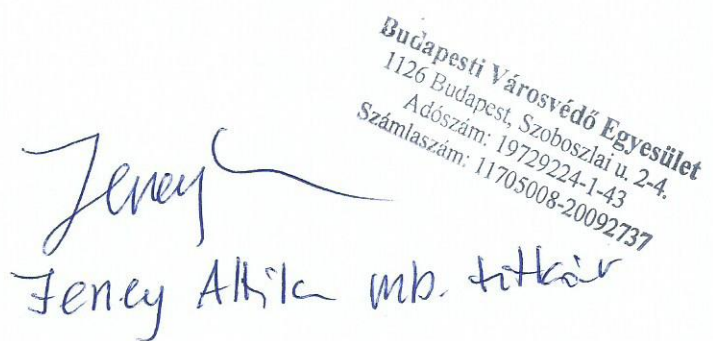 Budapesti Városvédő Egyesület
1126 Budapest, Szoboszlai u. 2-4.
Adószám: 19729224-1-43
Számlaszám: 11705008-20092737
Jeney
Jeney Attila mb. titkár